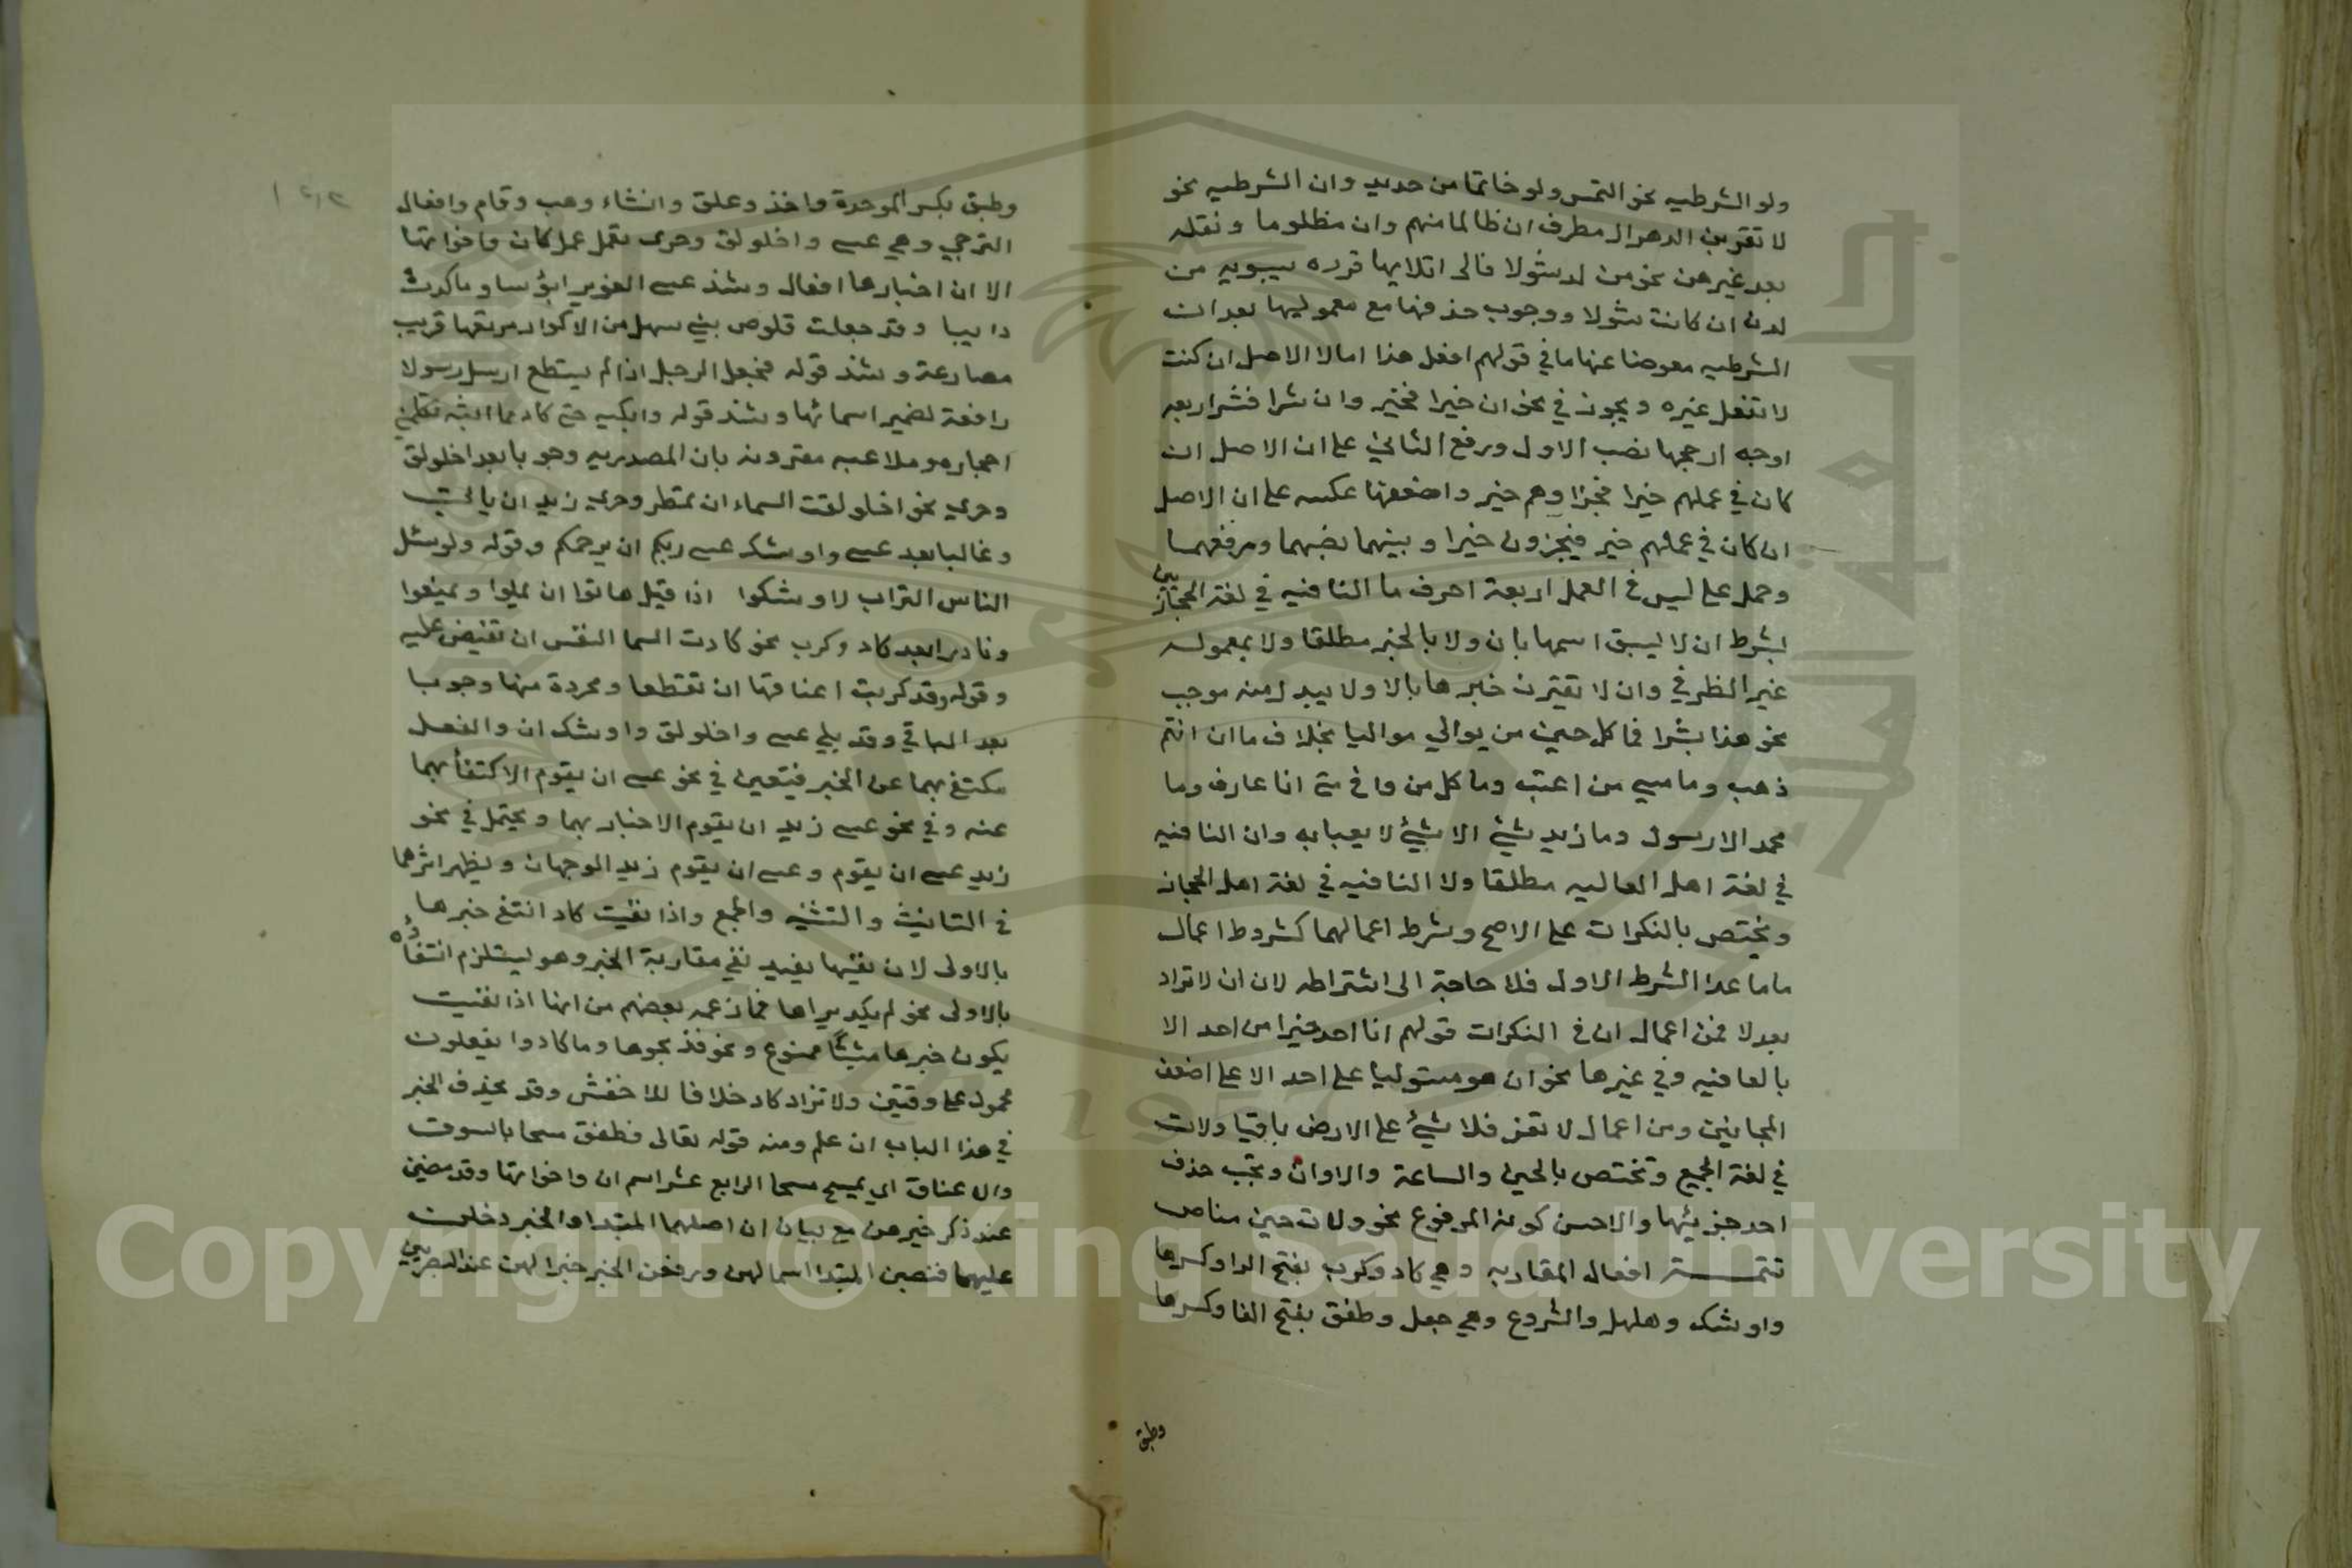 ولو الشرطيه نحو التمس ولو خاتما من حديد وان الشرطيه نحو
لا تقربن الدهر ال مطرف ان ظالما منهم وان مظلوما و نقله
بعد غيرهن نحو من لد شولا فالى اتلايها قرده سيبويه من
لدن ان كانت شولا ووجوب حذفها مع معموليها بعد ان
الشرطيه معوضا عنها ما في قولهم افعل هذا امالا الاصل ان كنت
لا تفعل غيره ويجوز في نحو ان خيرا فخير وان شرا فشر اربعه
اوجه ارجحها نصب الاول ورفع الثاني على ان الاصل ان
كان في عملهم خيرا فجزاوهم خير واضعفها عكسه على ان الاصل
ان كان في عملهم خير فيجزون خيرا وبينهما نصبهما ورفعهما
وحمل على ليس في العمل اربعة احرف ما النافيه في لغة الحجازيين
بشرط ان لا يسبق اسمها بان ولا بالخبر مطلقا ولا بمعموله
غير الظرفي وان لا تقترن خبرها بالا ولا يبدل منه موجب
نحو هذا بشرا فما كل حين من يوالي مواليا بخلاف ما ان انتم
ذهب وما مسي من اعتب وما كل من وافى منى انا عارف وما
محمد الا رسول وما زيد شيئ الا شيئ لا يعبا به وان النافيه
في لغة اهل العاليه مطلقا ولا النافيه في لغة اهل الحجاز
ويختص بالنكرات على الاصح وشرط اعمالهما كشروط اعمال
ما ما عدا الشرط الاول فلا حاجة الى اشتراطه لان ان لا تزاد
بعد لا فمن اعمال ان في النكرات قولهم ان احد خيرا من احد الا
بالعافيه وفي غيرها نحو ان هو مستوليا على احد الا على اضعف
المجانين ومن اعمال لا تعز فلا شيئ على الارض باقيا ولات
في لغة الجميع وتختص بالحين والساعة والاوان وتجب حذف
احد جزئيها والاحسن كونه المرفوع نحو ولات حين مناص
تتمــــة افعال المقاربه وهي كاد وكرب بفتح الرا وكسرها
واوشك وهلهل والشروع وهي جعل وطفق بفتح الفا وكسرها
وطبق
وطبق بكسر الموحدة واخذ وعلق وانشاء وهب وقام وافعال
الترجي وهي عسى واخلولق وحرى تعمل عمل كان واخواتها
الا ان اخبارها افعال وشذ عسى الغوير ابؤسا وما كدت
دايبا وقد جعلت قلوص بني سهل من الاكوار مرتعها قريب
مضارعة وشذ قوله فجعل الرجل اذا لم يستطع ارسل رسولا
رافعة لضمير اسمائها وشذ قوله وابكيه حتى كاد مما ابثه تكلمني
احجاره وملاعبه مقرونه بان المصدريه وجوبا بعد اخلولق
وحرى نحو اخلولقت السماء ان تمطر وحرى زيد ان ياتي
وغالبا بعد عسى واوشك عسى ربكم ان يرحمكم وقوله ولو سئل
الناس التراب لاوشكوا اذا قيل هاتوا ان يملوا ويمنعوا
ونادرا بعد كاد وكرب نحو كادت النفس ان تفيض عليه
وقوله وقد كربت اعناقها ان تقطعا ومجردة منها وجوبا
بعد الباقي وقد يلي عسى واخلولق واوشك ان والفعل
مكتفى بهما عن الخبر فيتعين في نحو عسى ان يقوم الاكتفأ بهما
عنه وفي نحو عسى زيد ان يقوم الاخبار بهما ويحتمل في نحو
زيد عسى ان يقوم وعسى ان يقوم زيد الوجهان ويظهر اثرهما
في التانيث والتثنيه والجمع واذا نفيت كاد انتفى خبرها
بالاولى لان نفيها يفيد نفي مقاربة الخبر وهو يستلزم انتفاؤه
بالاولى نحو لم يكد يراها فما زعمه بعضهم من انها اذا نفيت
يكون خبرها مثبتًا ممنوع ونحو فذبحوها وما كادوا يفعلون
محمول على وقتين ولا تزاد كاد خلافا للاخفش وقد يحذف الخبر
في هذا الباب ان علم ومنه قوله تعالى فطفق مسحا بالسوق
والاعناق اي يمسح مسحا الرابع عشر اسم ان واخواتها وقد مضين
عند ذكر خبرهن مع بيان ان اصلهما المبتدا والخبر دخلت
عليهما فنصبن المبتدا اسما لهن ورفعن الخبر خبرا لهن عند البصريين